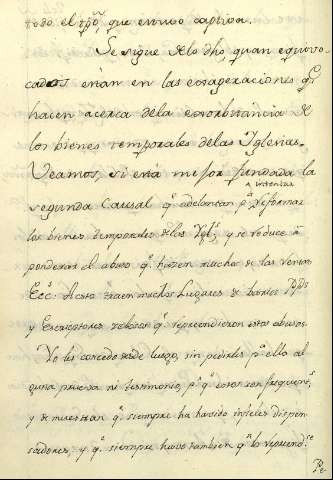 todo el tpõ, que estuvo captiva.
Se sigue delo dho, quan equivo-
cados están en las exageraciones q.
hacen acerca dela exorbitancia de
los bienes temporales delas Yglesias.
Veamos, si está mejor fundada la
intentar
segunda causal q.e adelantan p.a reformar
los bienes temporales delas Ygl.s, y se reduce â
ponderar el abuso q.e hazen muchos de las rentas
Ecc.s A esto traen muchos lugares de Santos PP.
y Escriptores zelosos q.e reprendieron estos abusos.
Yo les concedo desde luego, sin pedirles p.a ello al
guna prueva ni testimonio, p.s q.e estos son frequen.s,
y demuestran q.e siempre ha havido infieles dispen
sadores, y q.e siempre huvo tambien q.n los reprend.se